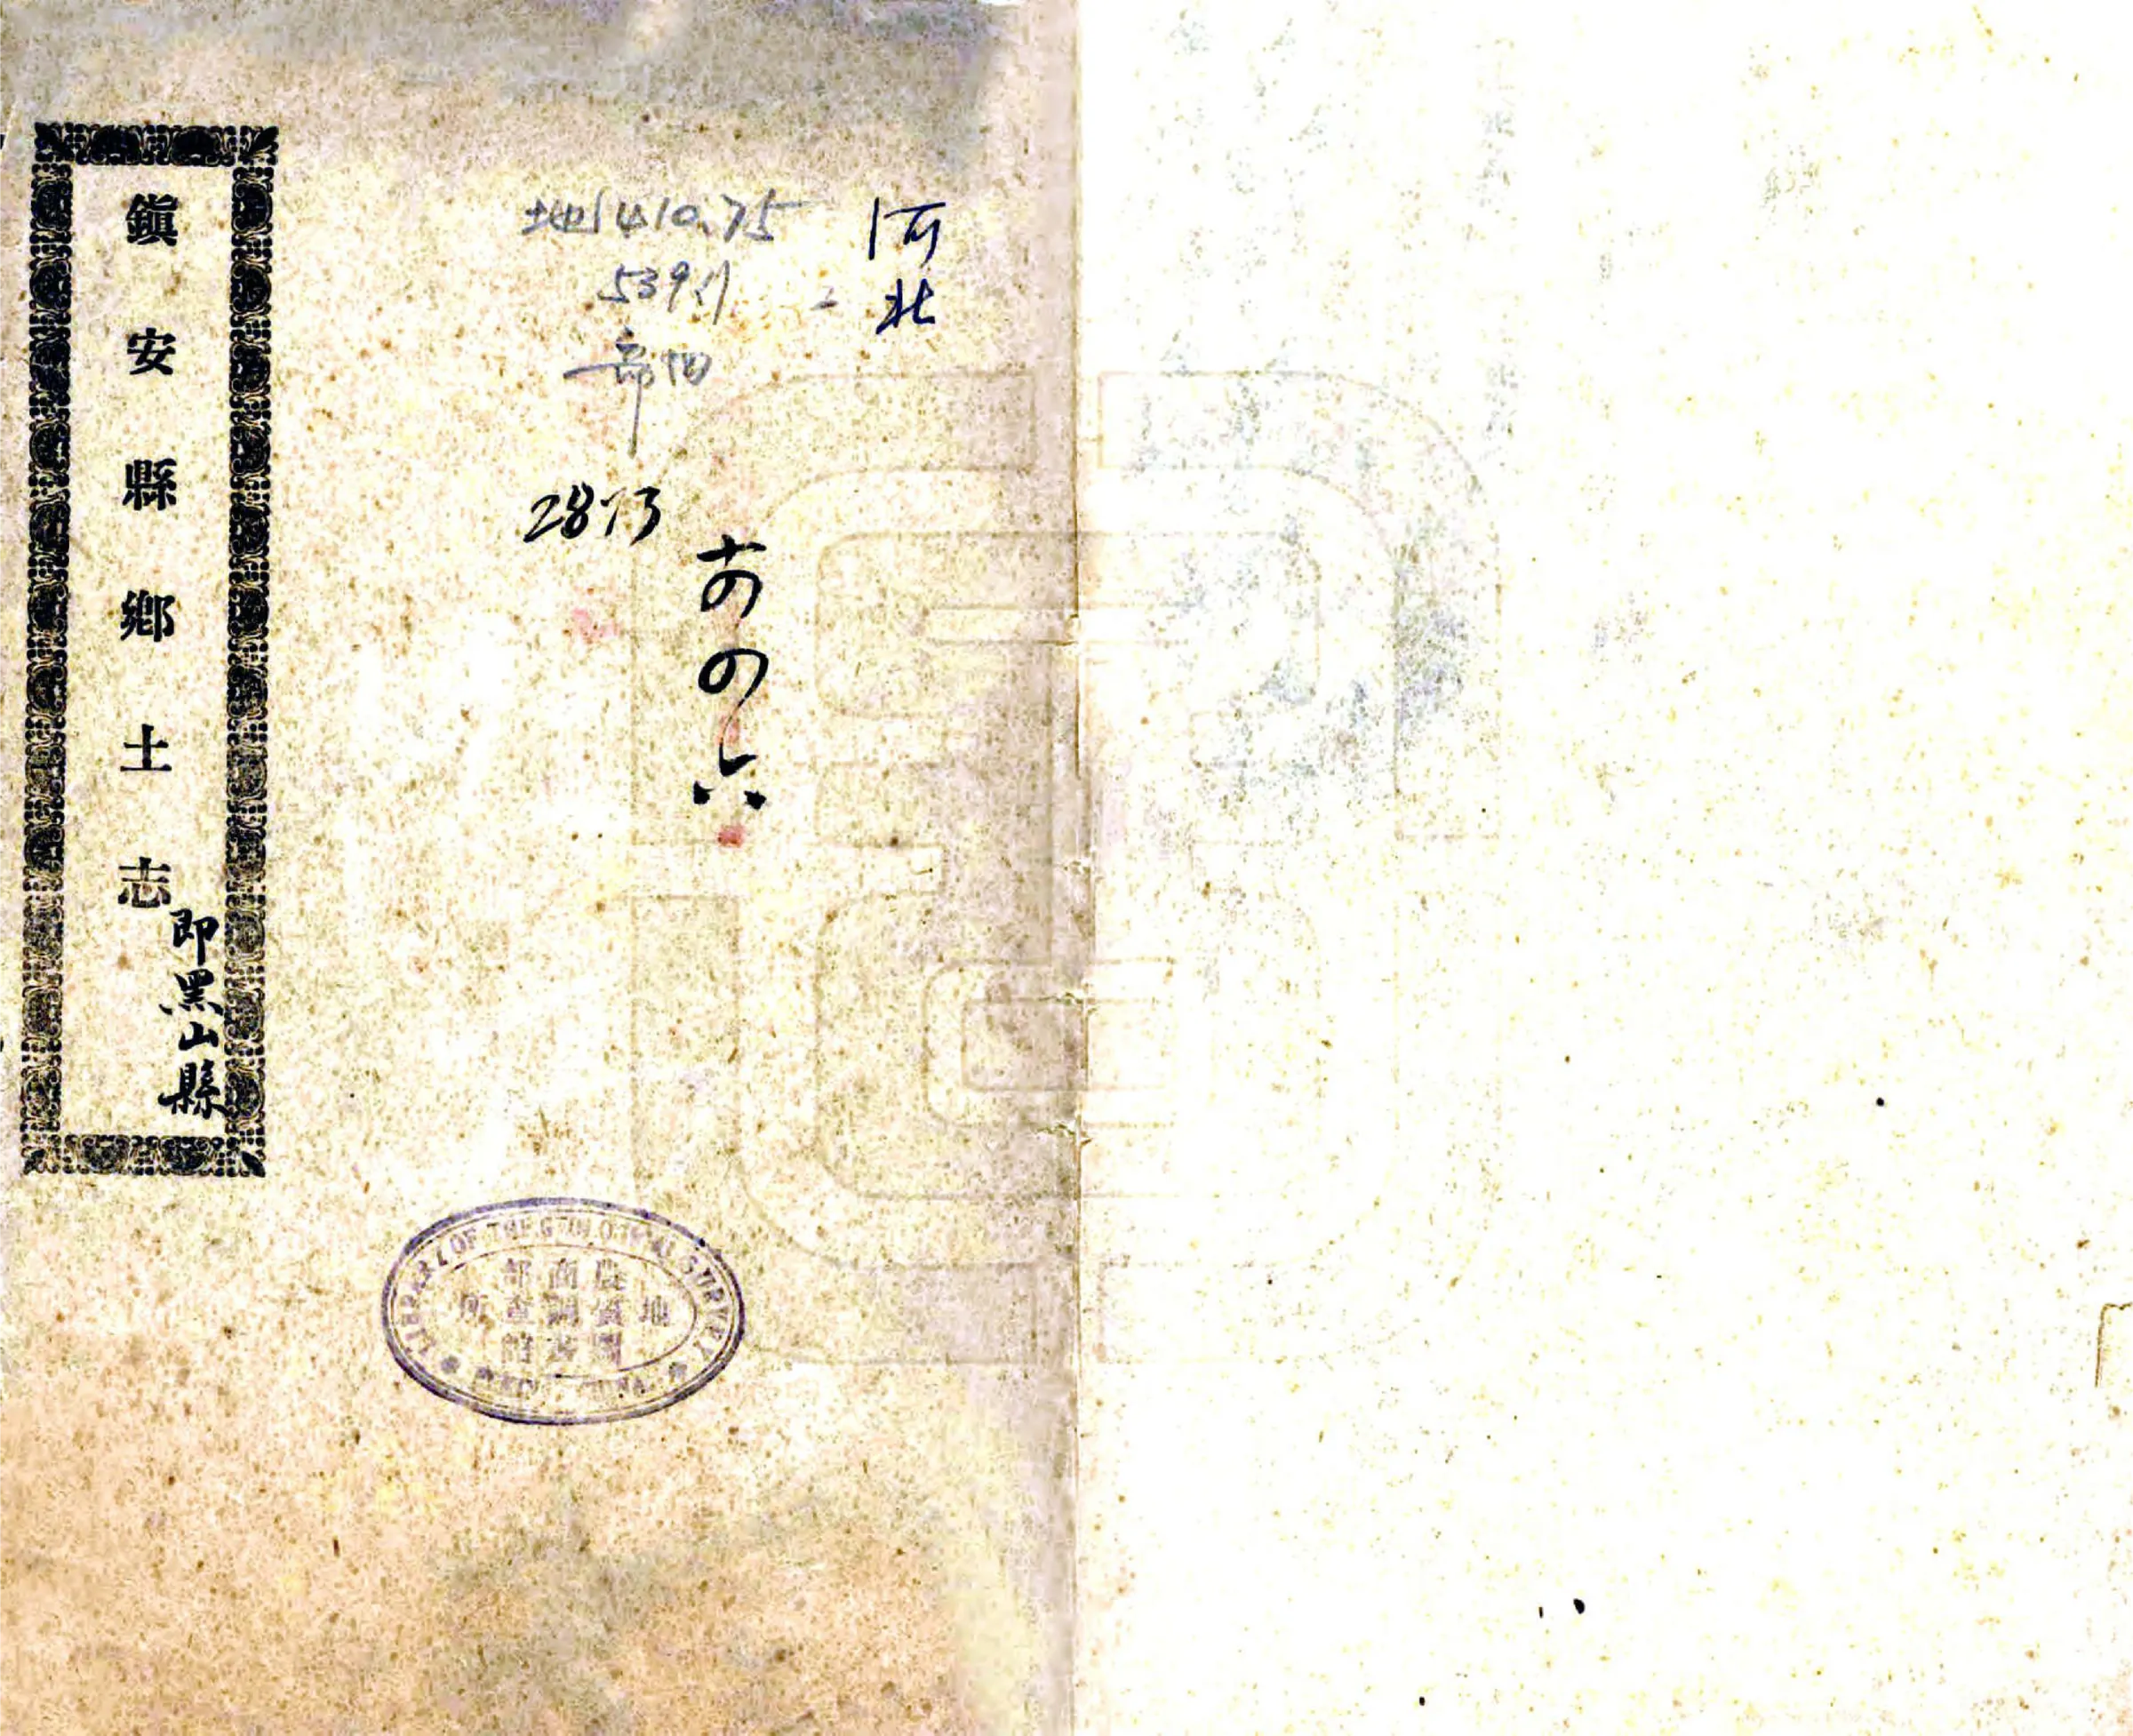 鎮安縣鄉土志
即黑山縣
河北
地1410.75
539.1
2873
LIBRARY OF THE GEOLOGICAL SURVEY
農商部
地質調查所
圖書館
CHINA